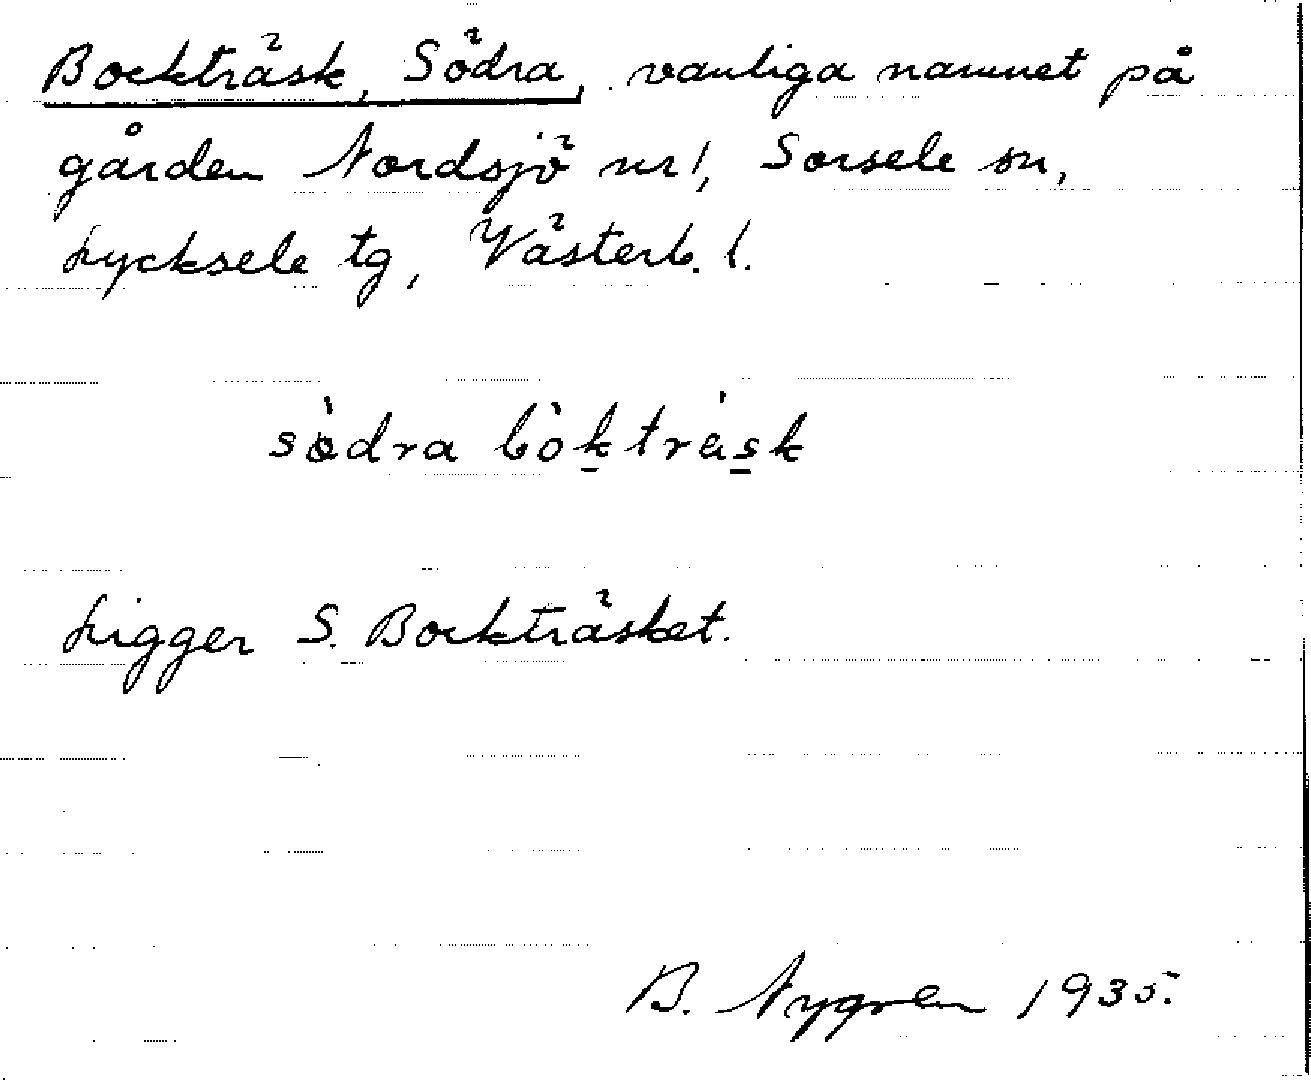 Bockträsk, Södra, vanliga namnet på
gården Nordsjö nr 1, Sorsele sn,
Lycksele tg, Västerb. l.
södra bòk̲trás̲k
Ligger S. Bockträsket.
B. Nygren 1935.